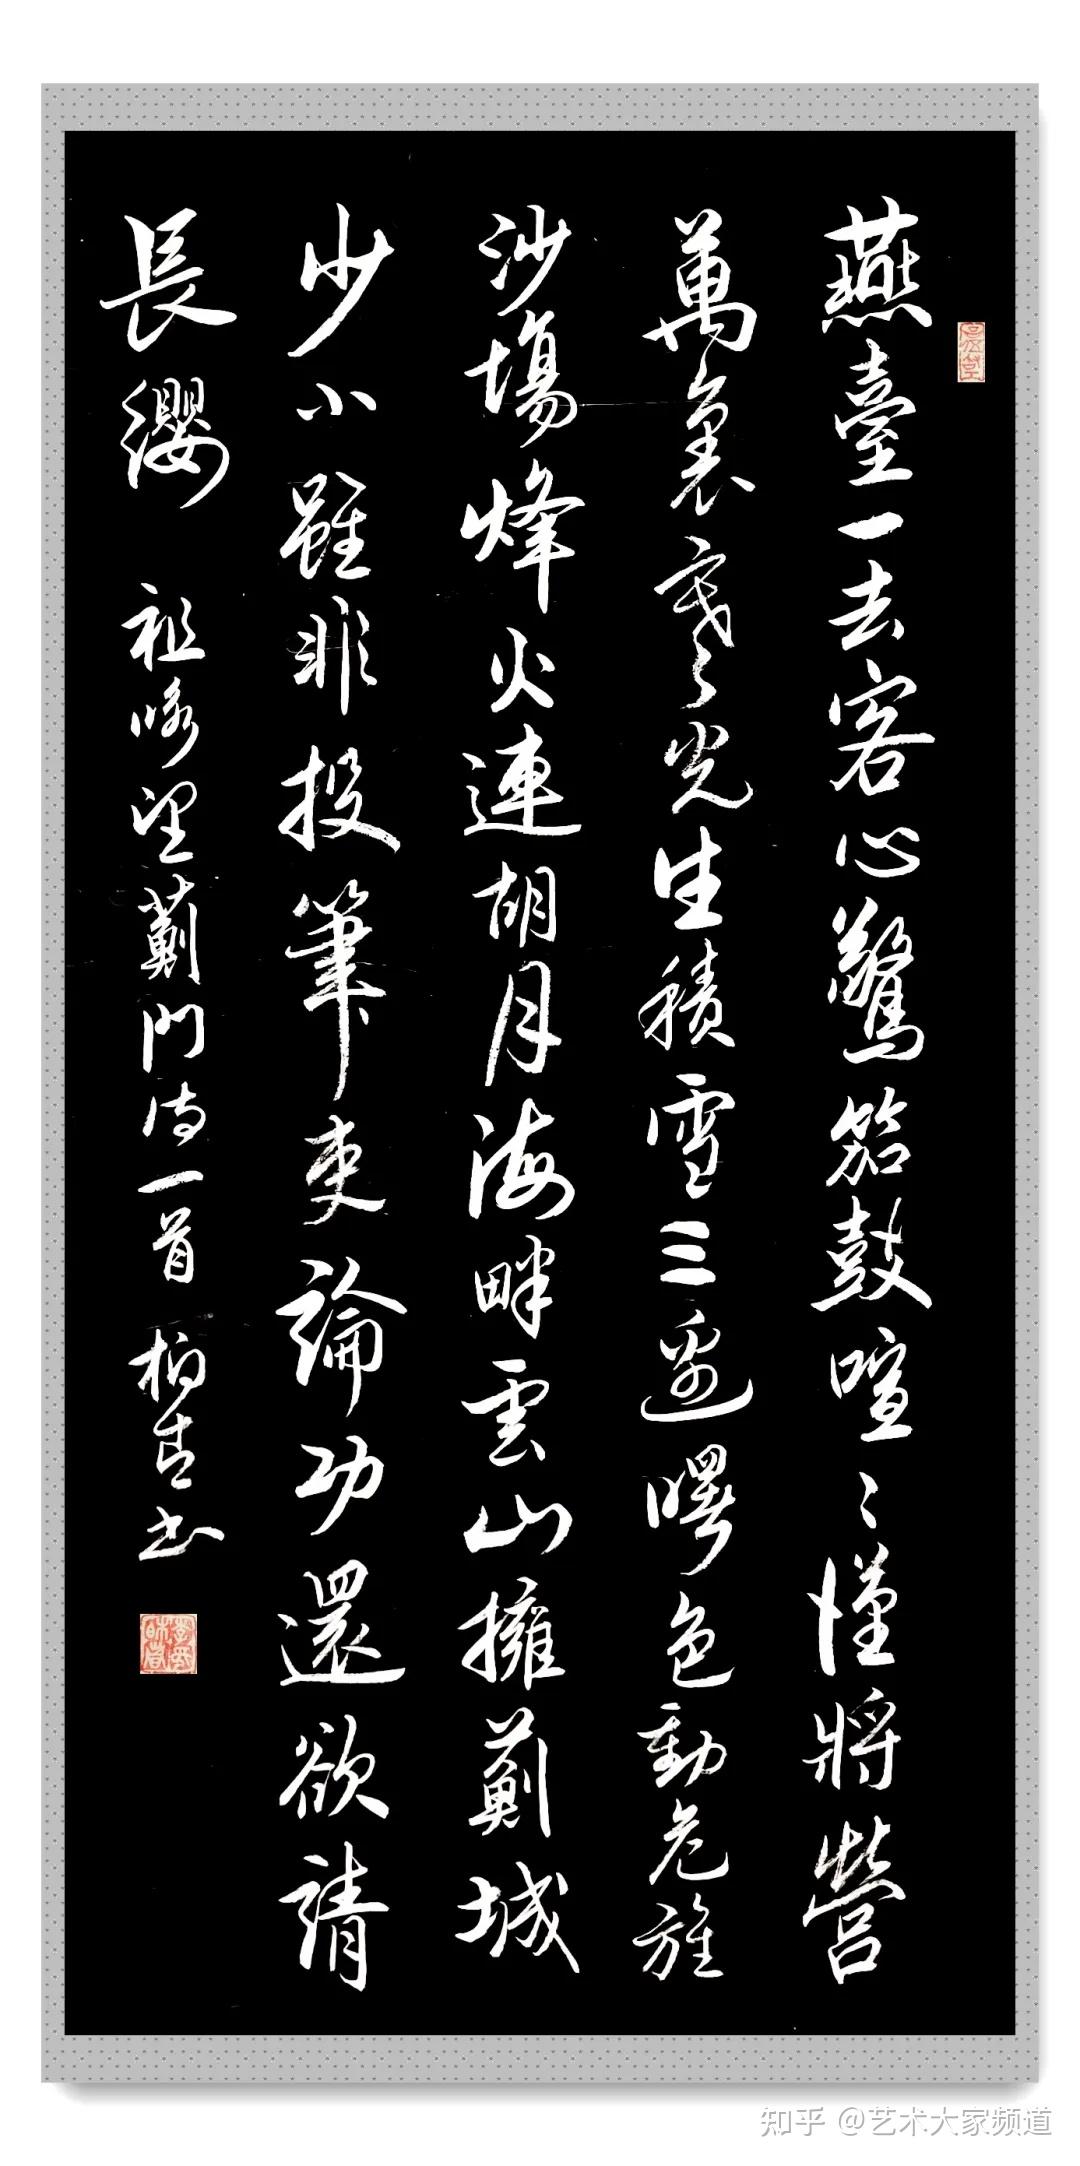 燕臺一去客心驚笳鼓喧〻漢將營
萬裏寒光生積雪三邊曙色動危旌
沙場烽火連胡月海畔雲山擁薊城
少小雖非投筆吏論功還欲請
長纓 祖咏望薊門詩一首 柏青书
知乎 @艺术大家频道